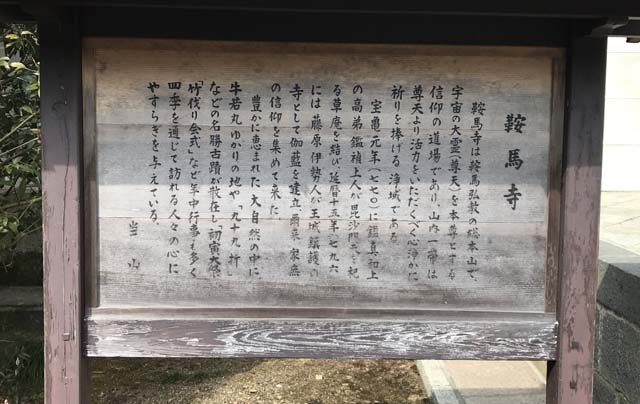 鞍馬寺
鞍馬寺は鞍馬弘教の総本山で、
宇宙の大霊(尊天)を本尊とする
信仰の道場であり、山内一帯は
尊天より活力をいただくべく心浄かに
祈りを捧げる浄域である
宝亀元年(七七〇)に鑑真和上
の高弟鑑禎上人が毘沙門天を祀
る草庵を結び延暦十五年(七九六
には藤原伊勢人が王城鎮護の
寺として伽藍を建立爾来衆庶
の信仰を集めて来た
豊かに恵まれた大自然の中に、
牛若丸ゆかりの地や「九十九折」
などの名勝古蹟が散在し「初寅大祭」
「竹伐り会式」など年中行事も多く
四季を通じて訪れる人々の心に
やすらぎを与えている。
当山